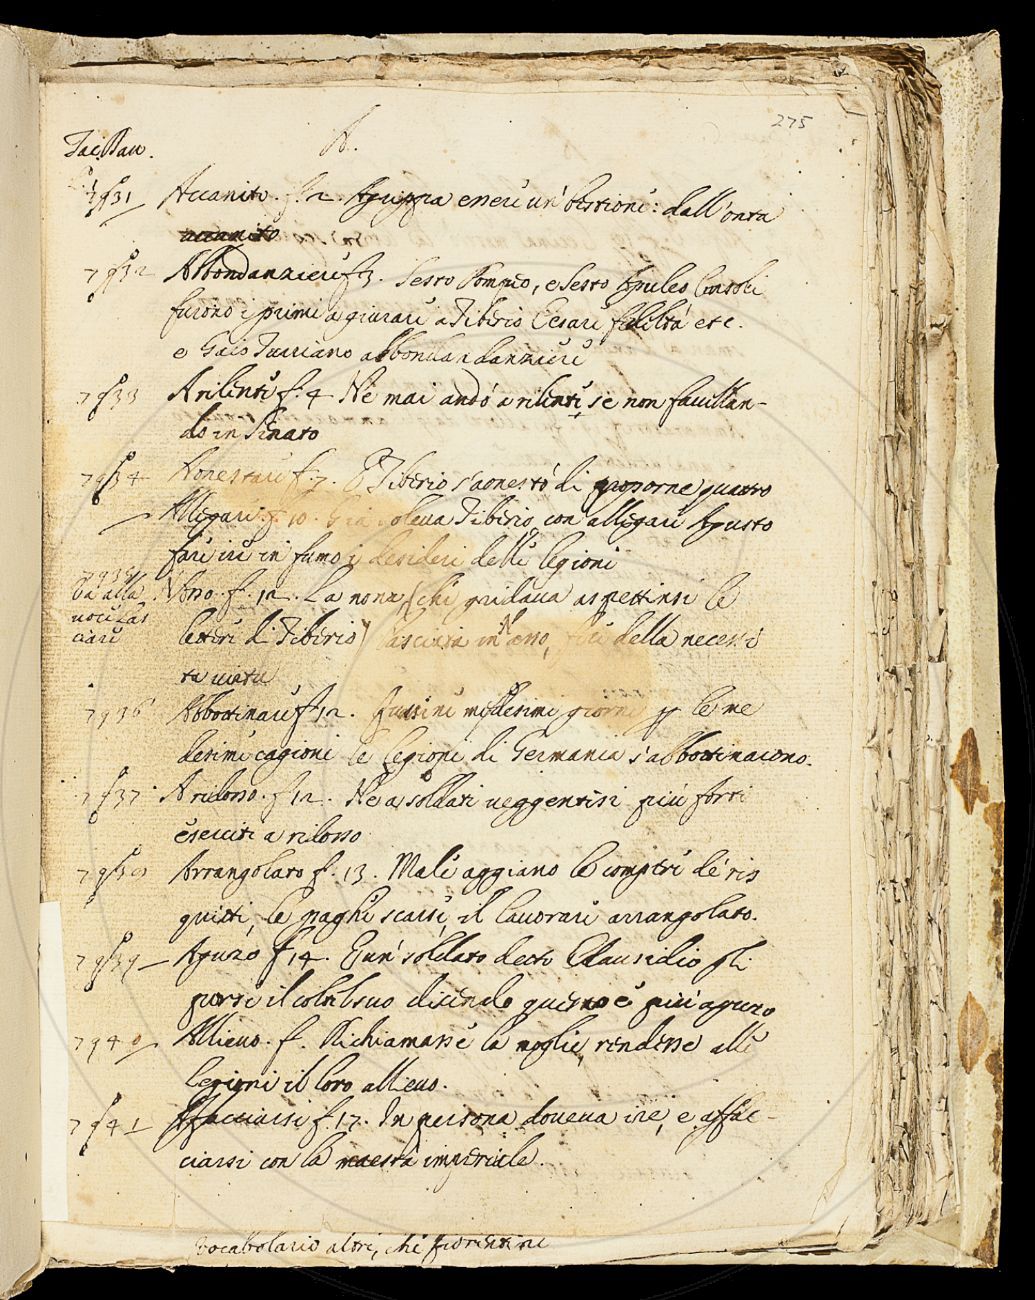 275
Tac. Dav. A.
7931 Accanito. f. 2. Agrippa essere un' bestione: dall'onta
accanito
7932 Abbondanziere f. 3. Sesto Pompeo, e Sesto Apuleo Consoli
furono i primi a giurare a Tiberio Cesare fedeltà etc.
e Gaio Turriano abbondandanziere
7933 A rilente f. 4 Nè mai andò a rilente, se non favellan-
do in Senato
7934 Aonestare f. 7. Tiberio s'aonestò di proporne quattro
Allegare f. 10. Gia soleva Tiberio con allegare Agusto
fare ire in fumo i desideri delle legioni
7935 Va alla voce Lasciare
Asso. f. 12. La nona (che gridava aspettinsi le
lettere di Tiberio) lasciata in Asso, fece della necessi
ta virtu
7936 Abbottinare f. 12. Quasi ne medesimi giorni p le me
desime cagioni le legioni di Germania s'abbottinarono.
7937 A ridosso. f. 12. Ne a soldati veggentisi più forti
eserciti a ridosso
7938 Arrangolato f. 13. Male aggiano le compere de ris
quitti, le paghe scarse, il lavorare arrangolato.
7939 Aguzo f. 14. E un' soldato detto Clausidio gli
porse il coltel suo dicendo questo è più aguzo
7940 Allievo. f. Richiamasse la moglie, rendesse alle
legioni il loro allievo.
7941 Affacciarsi f. 17. In persona doveva ire, e affac-
ciarsi con la maestà imperiale.
vocabolario altri, che fiorentini